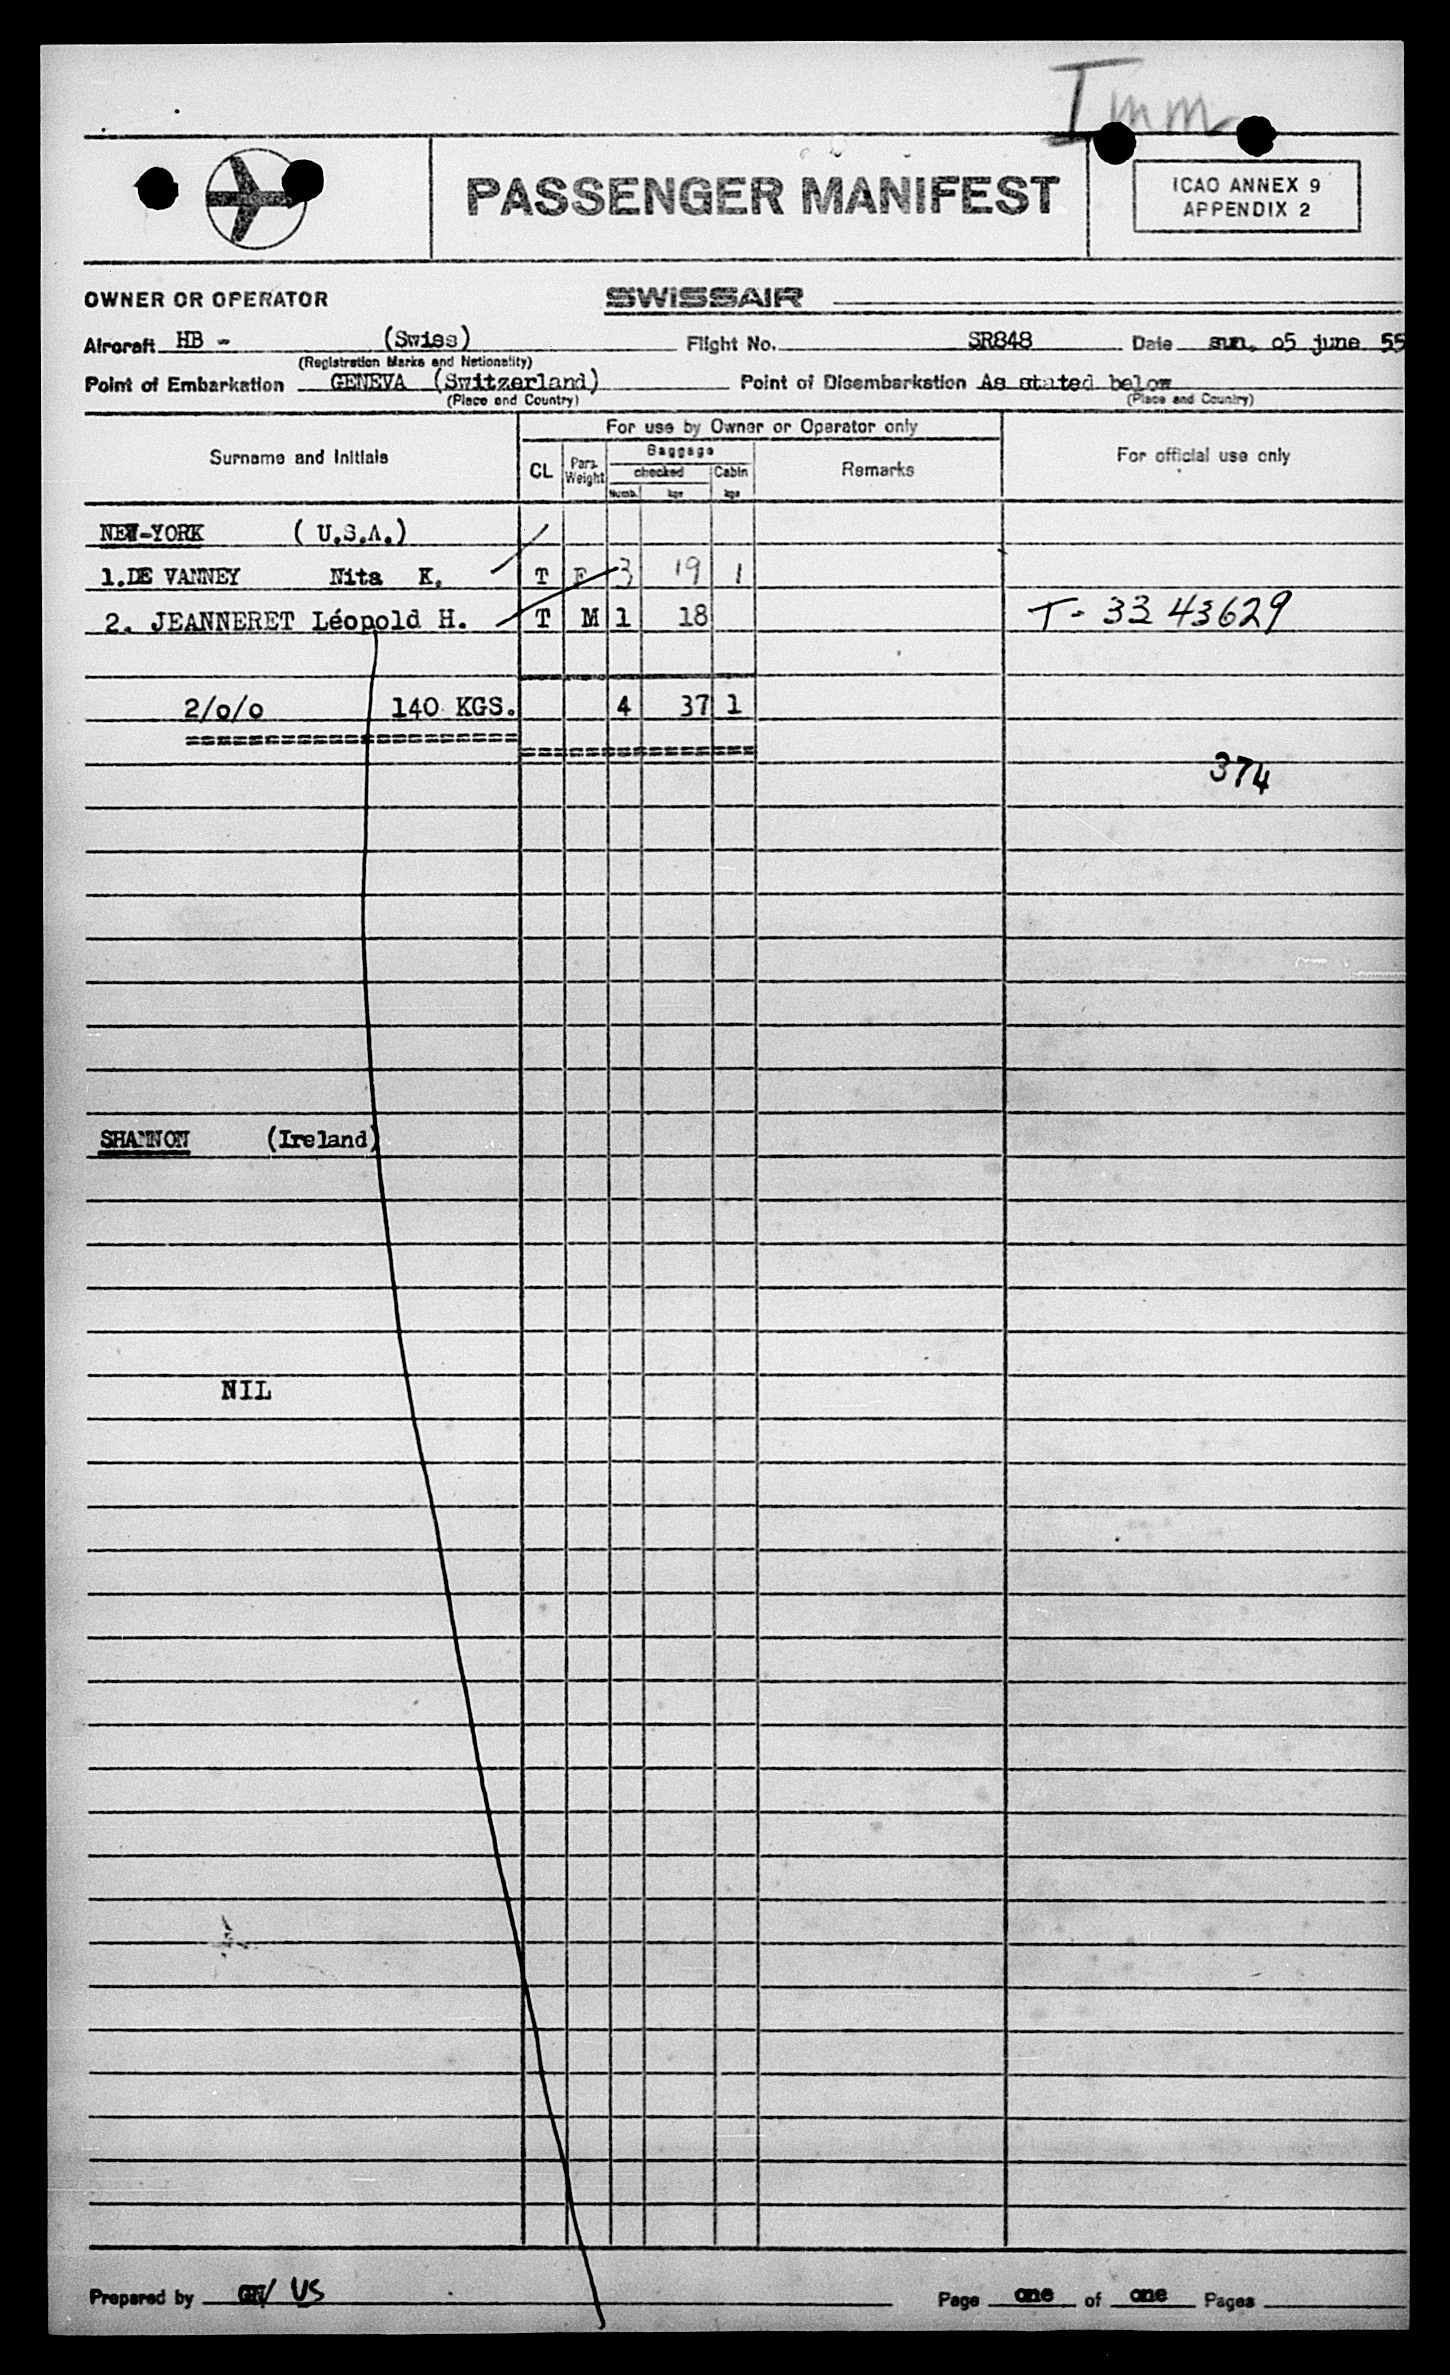 Imm
PASSENGER MANIFEST
ICAO ANNEX 9
APPENDIX 2
OWNER OR OPERATOR SWISSAIR
Aircraft HB - (Swiss) Flight No. SR848 Date sun. 05 june 55
(Registration Marks and Nationality)
Point of Embarkation GENEVA (Switzerland) Point of Disembarkation As stated below
(Place and Country) (Place and Country)
For use by Owner or Operator only
Surname and Initials CL Pars. Weight Baggage checked Cabin Remarks For official use only
Numb. kgs kgs
NEW-YORK ( U.S.A.)
1.DE VANNEY Nita K. T F 3 19 1
2. JEANNERET Léopold H. T M 1 18 T- 33 43629
2/o/o 140 KGS. 4 37 1
374
SHANNON (Ireland)
NIL
Prepared by / US Page one of one Pages